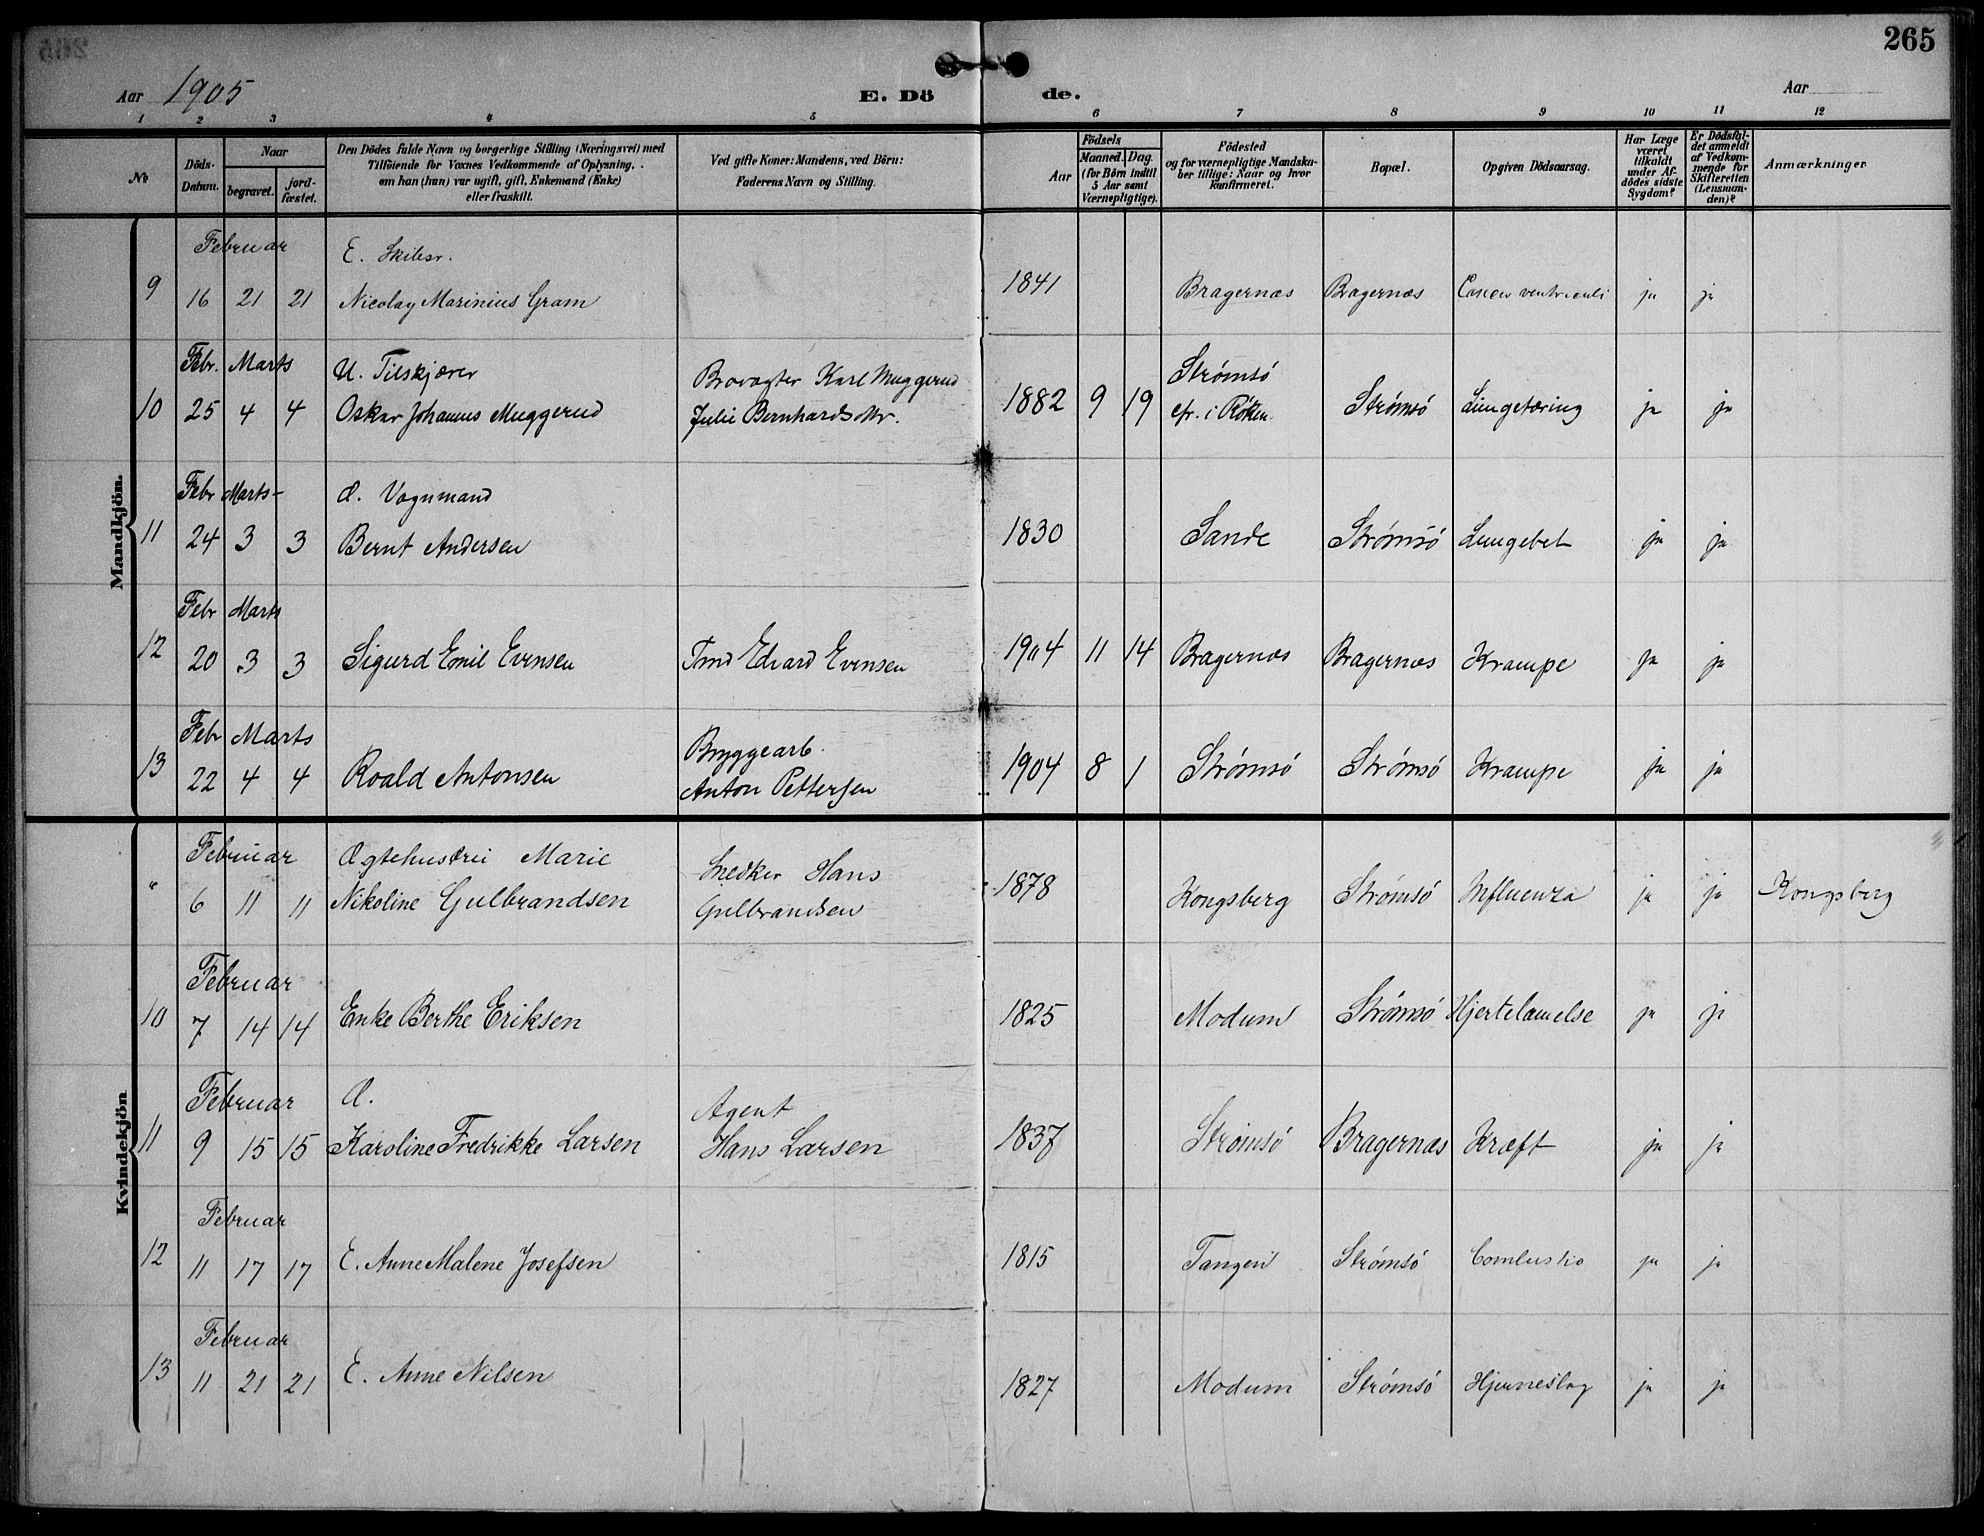 265
Aar 1905
E. Dö de.
Aar
1 2 3 4 5 6 7 8 9 10 11 12
№
Döds-Datum.
Naar
begravet.
jord-fæstet.
Den Dödes fulde Navn og borgerlige Stilling (Næringsvei) med
Tilföiende for Voxnes Vedkommende af Oplysning,
om han (hun) var ugift, gift, Enkemand (Enke)
eller fraskilt.
Ved gifte Koner: Mandens, ved Börn:
Faderens Navn og Stilling.
Födsels
Aar
Maaned. Dag.
(for Börn indtil
5 Aar samt
Værnepligtige).
Födested
og for værnepligtige Mandska-
ber tillige: Naar og hvor
konfirmeret.
Bopæl.
Opgiven Dödsaarsag.
Har Læge
været
tilkaldt
under Af-
dödes sidste
Sygdom?
Er Dödsfal-
det anmeldt
af Vedkom-
mende for
Skifteretten
(Lensman-
den)?
Anmærkninger
Mandkjön.
Februar E. Skibsr.
9 16 21 21 Nicolay Marinius Gram 1841 Bragernæs Bragernæs Cancer ventriculi ja ja
Febr. Marts U. Tilskjærer Brovagter Karl Muggerud Strømsö
10 25 4 4 Oskar Johannes Muggerud Julie Bernhardsdtr. 1882 9 19 cfr. i Røken Strømsö Lungetæring ja ja
Febr Marts- Æ. Vognmand
11 24 3 3 Bernt Andersen 1830 Sande Strømsö Lungebet ja ja
Febr Marts
12 20 3 3 Sigurd Emil Evensen Tmd Edvard Evensen 1904 11 14 Bragernæs Bragernæs Krampe ja ja
Febr Marts Bryggearb.
13 22 4 4 Roald Antonsen Anton Pettersen 1904 8 1 Strömsö Strömsö Krampe ja ja
Kvindekjön
Februar Ægtehustru Marie Snedker Hans
" 6 11 11 Nikoline Gulbrandsen Gulbrandsen 1878 Kongsberg Strömsö Influenza ja ja Kongsberg
Februar
10 7 14 14 Enke Berthe Eriksen 1825 Modum Strömsö Hjertelamelse ja ja
Februar Æ. Agent
11 9 15 15 Karoline Fredrikke Larsen Hans Larsen 1837 Strömsö Bragernæs Kræft ja ja
Februar
12 11 17 17 E. Anne Malene Josefsen 1815 Tangen Strømsö Combustio ja ja
Februar
13 11 21 21 E. Anne Nilsen 1827 Modum Strømsö Hjerneslag ja ja